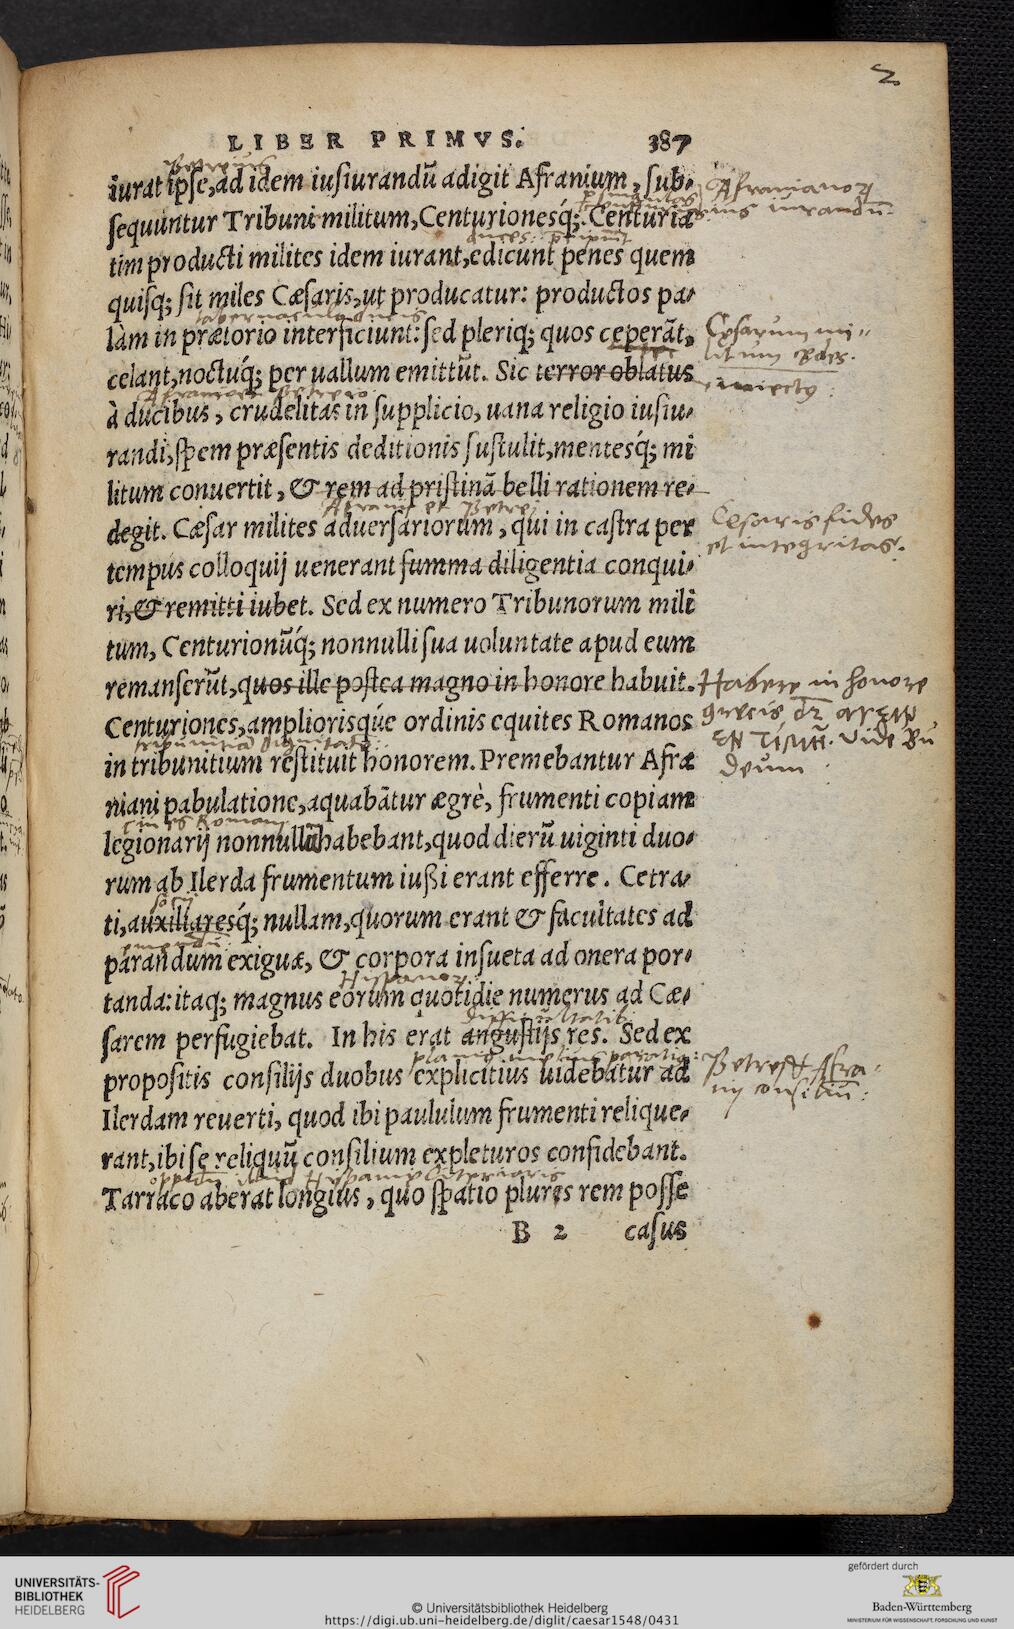 2
LIBER PRIMVS. 387
Petreius
iurat ipse, ad idem iusiurandũ adigit Afranium, sub-
Afranianorum
sequuntur Tribuni militum, Centurionesq́;. Centuria
ius iurandũ.
tim producti milites idem iurant, edicunt penes quem
quisq; sit miles Cæsaris, ut producatur: productos pa-
làm in prætorio interficiunt: sed pleriq; quos ceperãt,
Cesarum mi-
litum
celant, noctuq́; per uallum emittũt. Sic terror oblatus
iniectus:
Afranio Petreio
à ducibus, crudelitas in supplicio, uana religio iusiu-
randi, spem præsentis deditionis sustulit, mentesq́; mi
litum conuertit, & rem ad pristinã belli rationem re-
Afranii et Petrei
degit. Cæsar milites aduersariorum, qui in castra per
Cesaris fides
et integritas.
tempus colloquij uenerant summa diligentia conqui-
ri, & remitti iubet. Sed ex numero Tribunorum mili
tum, Centurionũq́; nonnulli sua uoluntate apud eum
remanserũt, quos ille postea magno in honore habuit.
Habere in honore
grecis dr̃ αγειν
εν τιμῇ. Vide Bu
deum
Centuriones, ampliorisq́ue ordinis equites Romanos
tribunitia dignitate:
in tribunitium restituit honorem. Premebantur Afra
niani pabulatione, aquabãtur ægrè, frumenti copiam
ciues Romani
legionarij nonnullã habebant, quod dierũ uiginti duo-
rum ab Ilerda frumentum iußi erant efferre. Cetra-
socii
ti, auxiliaresq́; nullam, quorum erant & facultates ad
emendũ:
parandum exiguæ, & corpora insueta ad onera por-
Hispanor
tanda: itaq; magnus eorum quotidie numerus ad Cæ-
sarem perfugiebat. In his erat angustijs res. Sed ex
propositis consilijs duobus explicitius uidebatur ad
Petreii & Afra-
nij consiliũ:
Ilerdam reuerti, quod ibi paululum frumenti relique-
rant, ibi se reliquũ consilium expleturos confidebant.
Tarraco aberat longius, quo spatio plures rem posse
B 2 casus
UNIVERSITÄTS-
BIBLIOTHEK
HEIDELBERG
© Universitätsbibliothek Heidelberg
https://digi.ub.uni-heidelberg.de/diglit/caesar1548/0431
gefördert durch
Baden-Württemberg
MINISTERIUM FÜR WISSENSCHAFT, FORSCHUNG UND KUNST